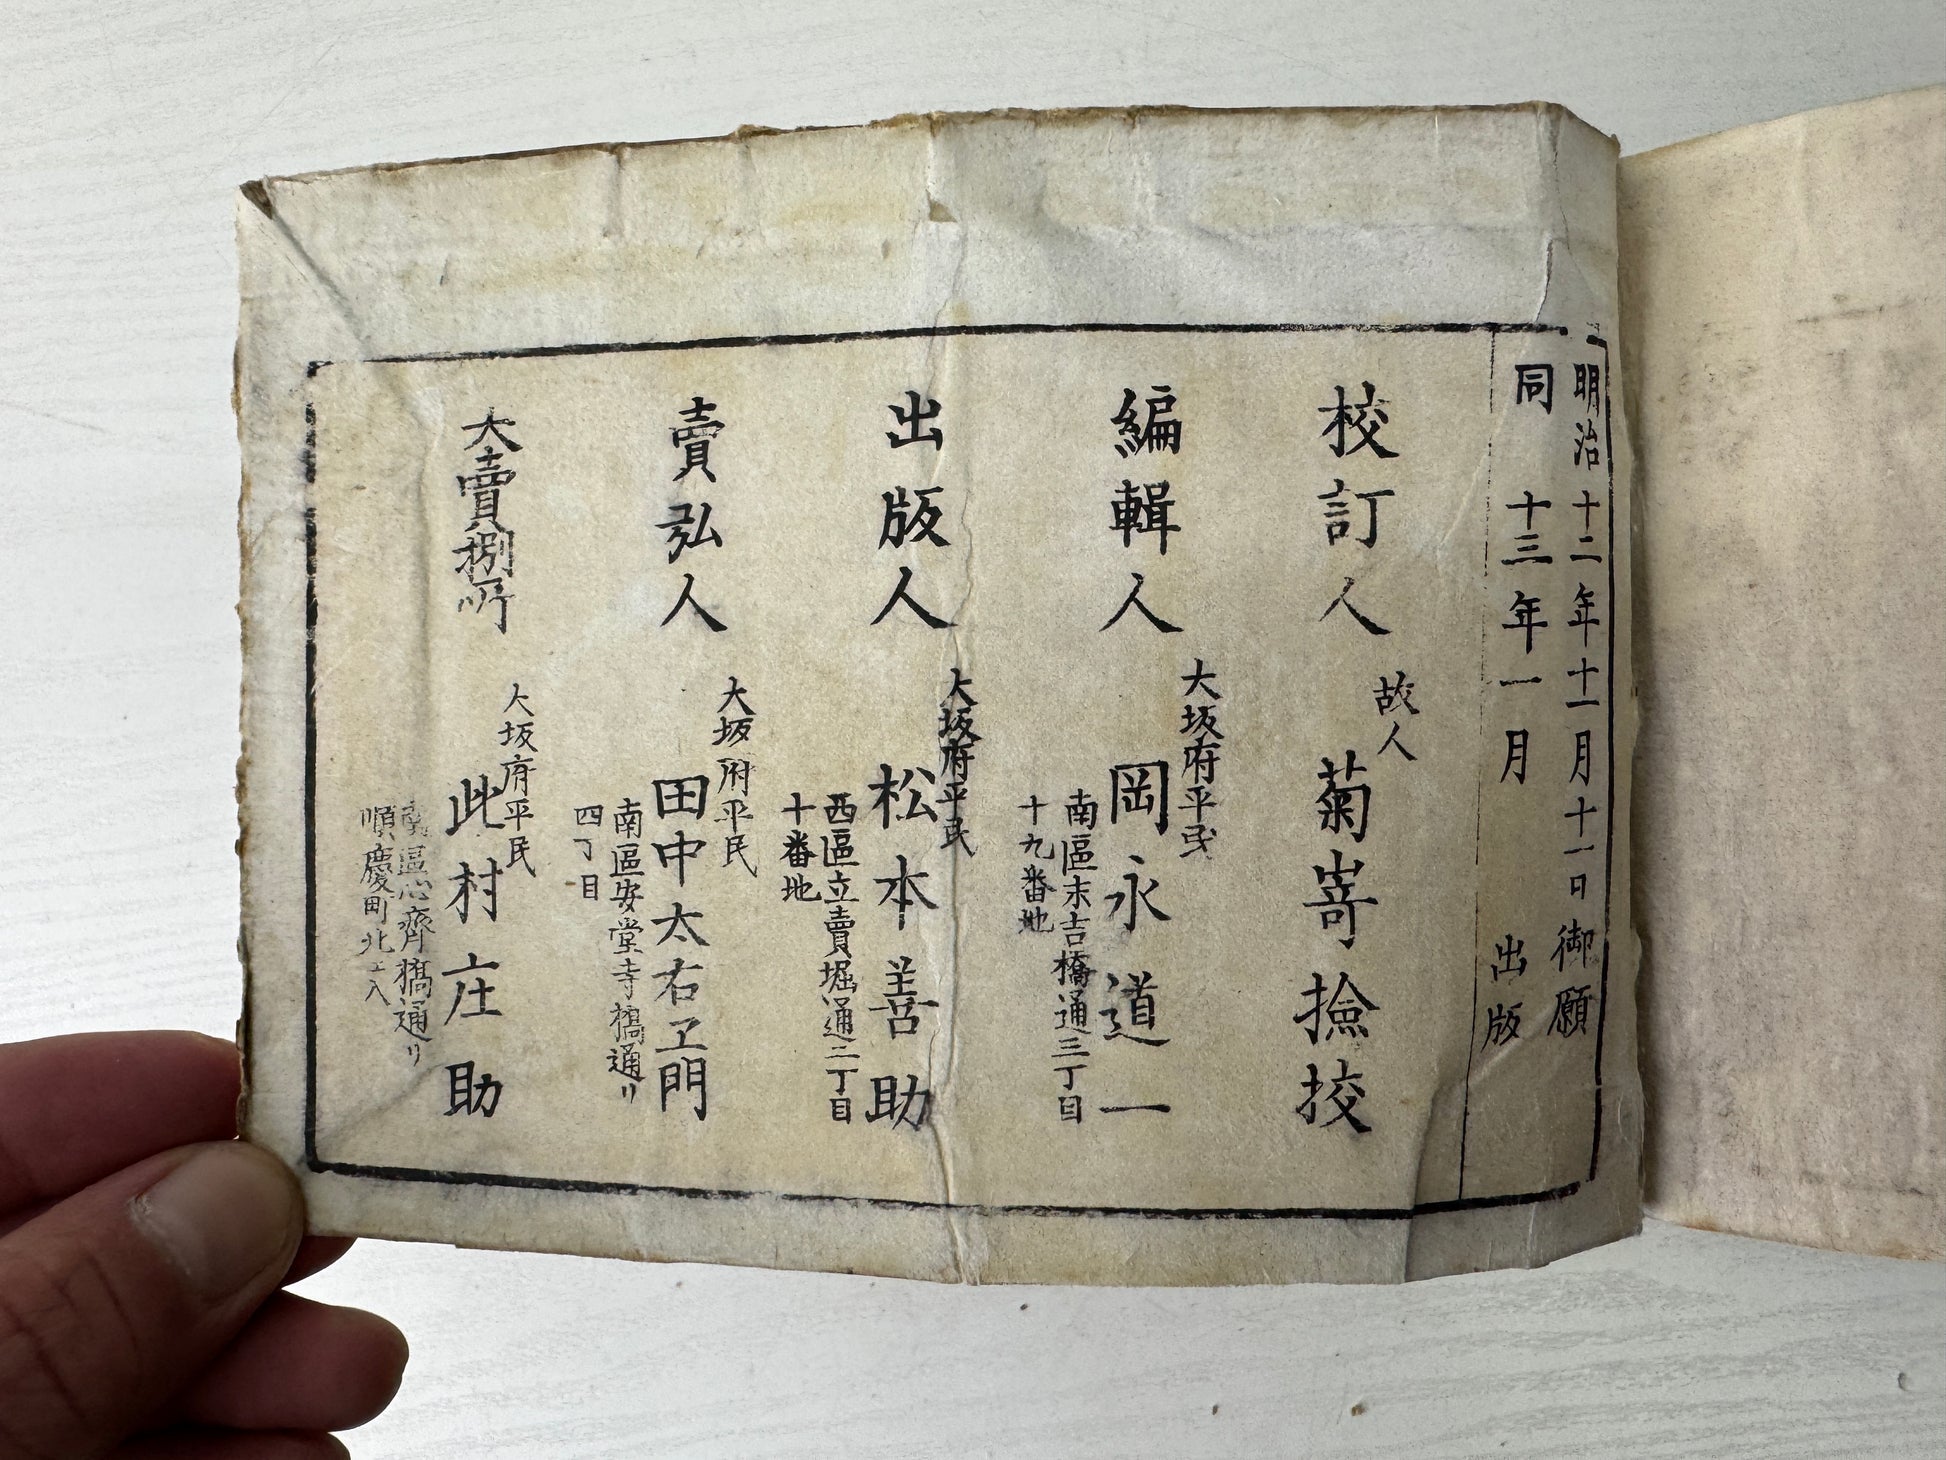 明治十二年十一月十一日御願
同 十三年一月 出版
校訂人
故人
菊嵜撿挍
編輯人
大坂府平民
岡永道一
南區末吉橋通三丁目
十九番地
出版人
大坂府平民
松本善助
西區立賣堀通二丁目
十番地
賣弘人
大坂府平民
田中太右エ門
南區安堂寺橋通リ
四丁目
大賣捌所
大坂府平民
此村庄助
南區心齊橋通リ
順慶町北エ入